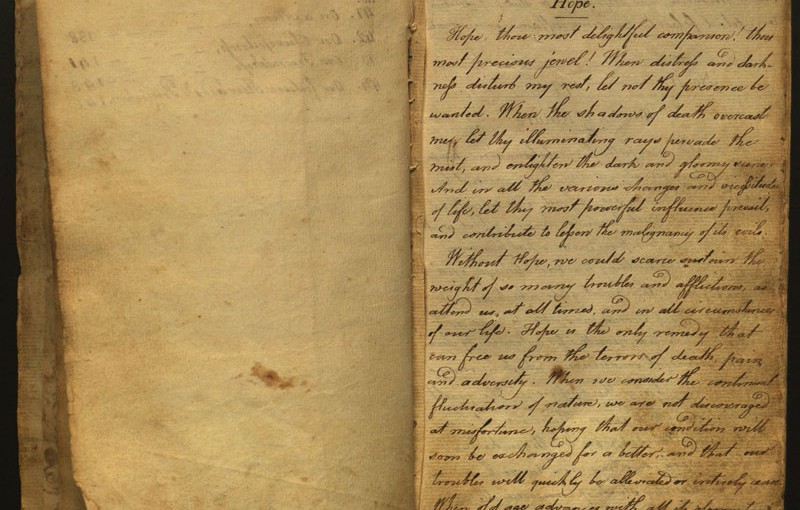 Hope.
Hope, thou most delightful companion! thou
most precious jewel! When distress and dark-
ness disturb my rest, let not thy presence be
wanted. When the shadows of death overcast
me, let thy illuminating rays pervade the
mist, and enlighten the dark and gloomy scene.
And in all the various changes and vicissitudes
of life, let thy most powerful influence prevail,
and contribute to lessen the malignancy of its evils.
Without Hope, we could scarce sustain the
weight of so many troubles and afflictions, as
attend us, at all times, and in all circumstances
of our life. Hope is the only remedy that
can free us from the terrors of death, pain,
and adversity. When we consider the continual
fluctuation of nature, we are not discouraged
at misfortune, hoping that our condition will
soon be exchanged for a better, and that our
troubles will quickly be alleviated or intirely cease.
When old age advances with all its